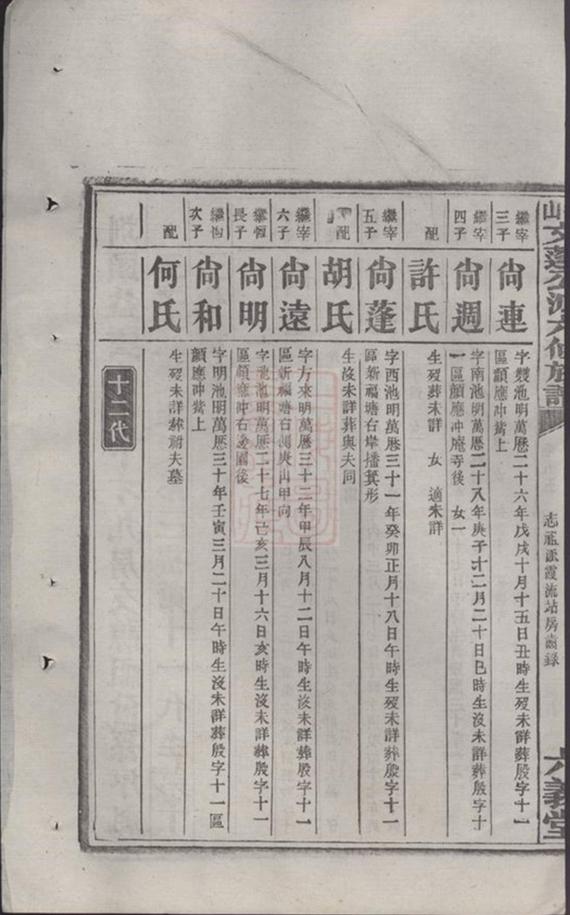 志藍派霞流站房齒錄
六義堂
繼宰三子
尙連
字雙池明萬曆二十六年戊戌十月十五日丑時生歿未詳葬殷字十一
區顏應冲嵛上
繼宰四子
尙週
字南池明萬曆二十八年庚子十二月二十日巳時生沒未詳葬殷字十
一區顏應冲庵寺後 女一
配
許氏
生歿葬未詳 女 適未詳
繼宰五子
尙蓬
字西池明萬曆三十一年癸卯正月十八日午時生歿未詳葬殷字十一
區新福塘右岸播箕形
配
胡氏
生沒未詳葬與夫同
繼宰六子
尙遠
字方來明萬曆三十二年甲辰八月十二日午時生歿未詳葬殷字十一
區新福塘右側庚山甲向
繼恆長子
尙明
字池明萬曆二十七年己亥三月十六日亥時生沒未詳葬殷字十一
區顏應冲右園後
繼恆次子
尙和
字明池明萬曆三十年壬寅三月二十日午時生沒未詳葬殷字十一區
顏應冲嵛上
配
何氏
生歿未詳葬祔夫墓
十二代